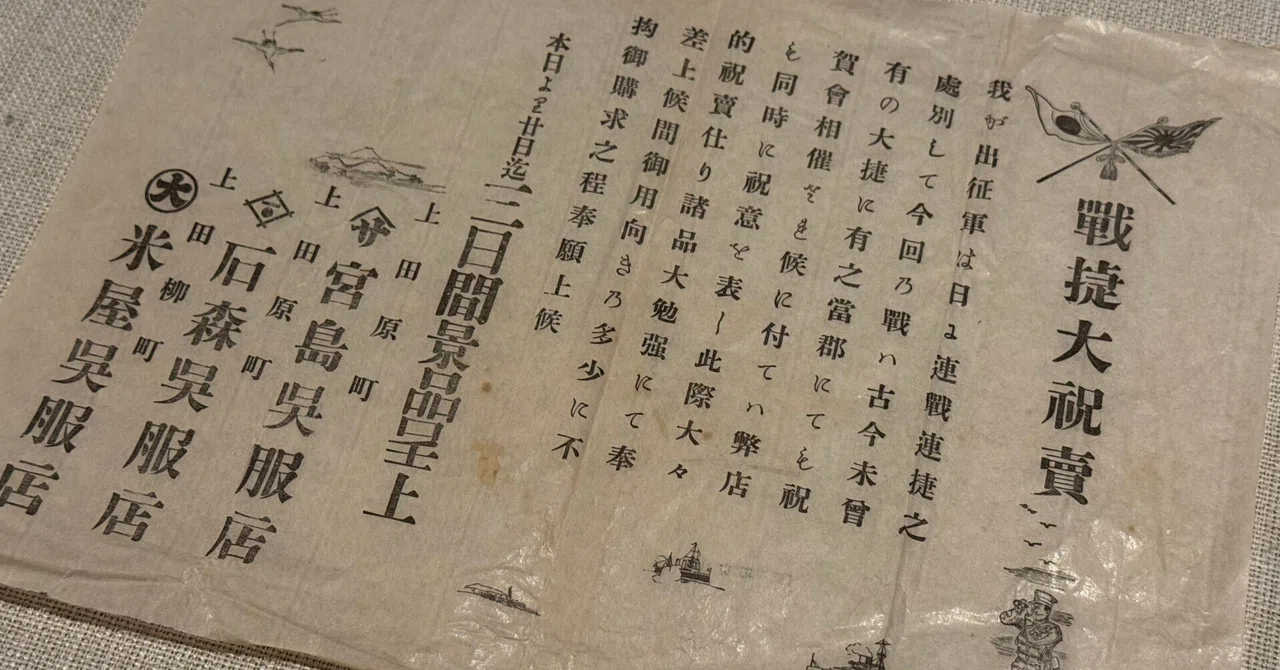 戰捷大祝賣
我が出征軍は日に連戰連捷之
處別して今回乃戰ハ古今未曾
有の大捷に有之當郡にても祝
賀會相催され候に付てハ弊店
も同時に祝意を表し此際大々
的祝賣仕り諸品大勉强にて奉
差上候間御用向き乃多少に不
拘御購求之程奉願上候
本日より廿日迄
三日間景品呈上
上田原町
サ宮島呉服店
上田原町
石森呉服店
上田柳町
大米屋呉服店